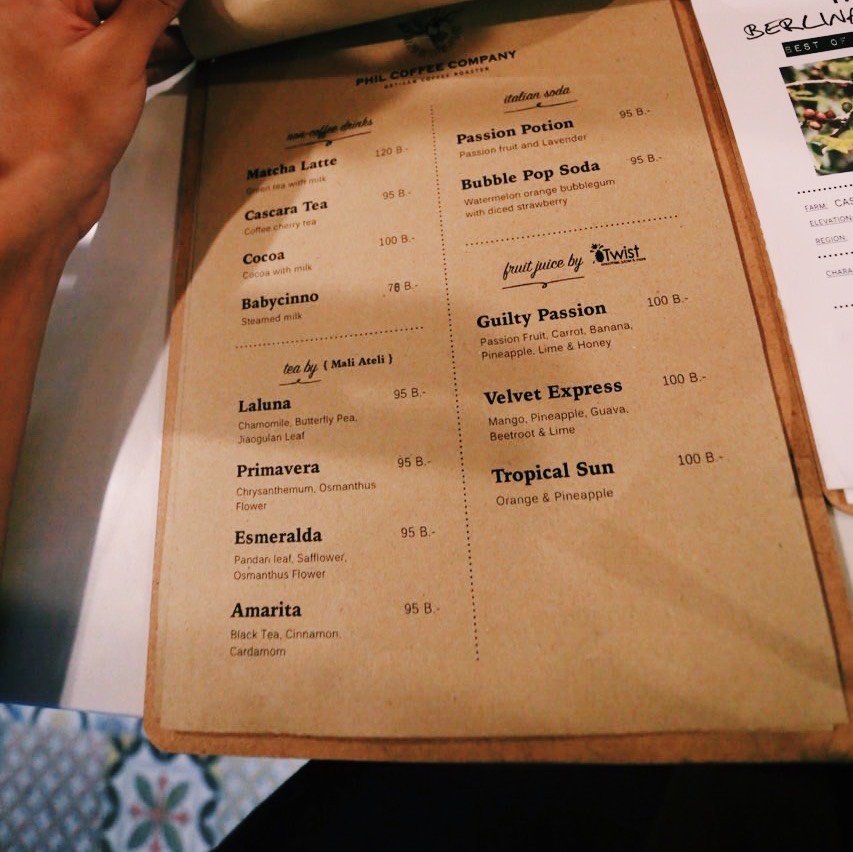 PHIL COFFEE COMPANY
ARTISAN COFFEE ROASTER
non-coffee drinks
Matcha Latte 120 B.-
Green tea with milk
Cascara Tea 95 B.-
Coffee cherry tea
Cocoa 100 B.-
Cocoa with milk
Babycinno B.-
Steamed milk
tea by { Mali Ateli }
Laluna 95 B.-
Chamomile, Butterfly Pea,
Jiaogulan Leaf
Primavera 95 B.-
Chrysanthemum, Osmanthus
Flower
Esmeralda 95 B.-
Pandan leaf, Safflower,
Osmanthus Flower
Amarita 95 B.-
Black Tea, Cinnamon,
Cardamom
italian soda
Passion Potion 95 B.-
Passion fruit and Lavender
Bubble Pop Soda 95 B.-
Watermelon orange bubblegum
with diced strawberry
fruit juice by Twist
Guilty Passion 100 B.-
Passion Fruit, Carrot, Banana,
Pineapple, Lime & Honey
Velvet Express 100 B.-
Mango, Pineapple, Guava,
Beetroot & Lime
Tropical Sun 100 B.-
Orange & Pineapple
BEST OF
FARM: CAS
ELEVATION
REGION:
CHARA